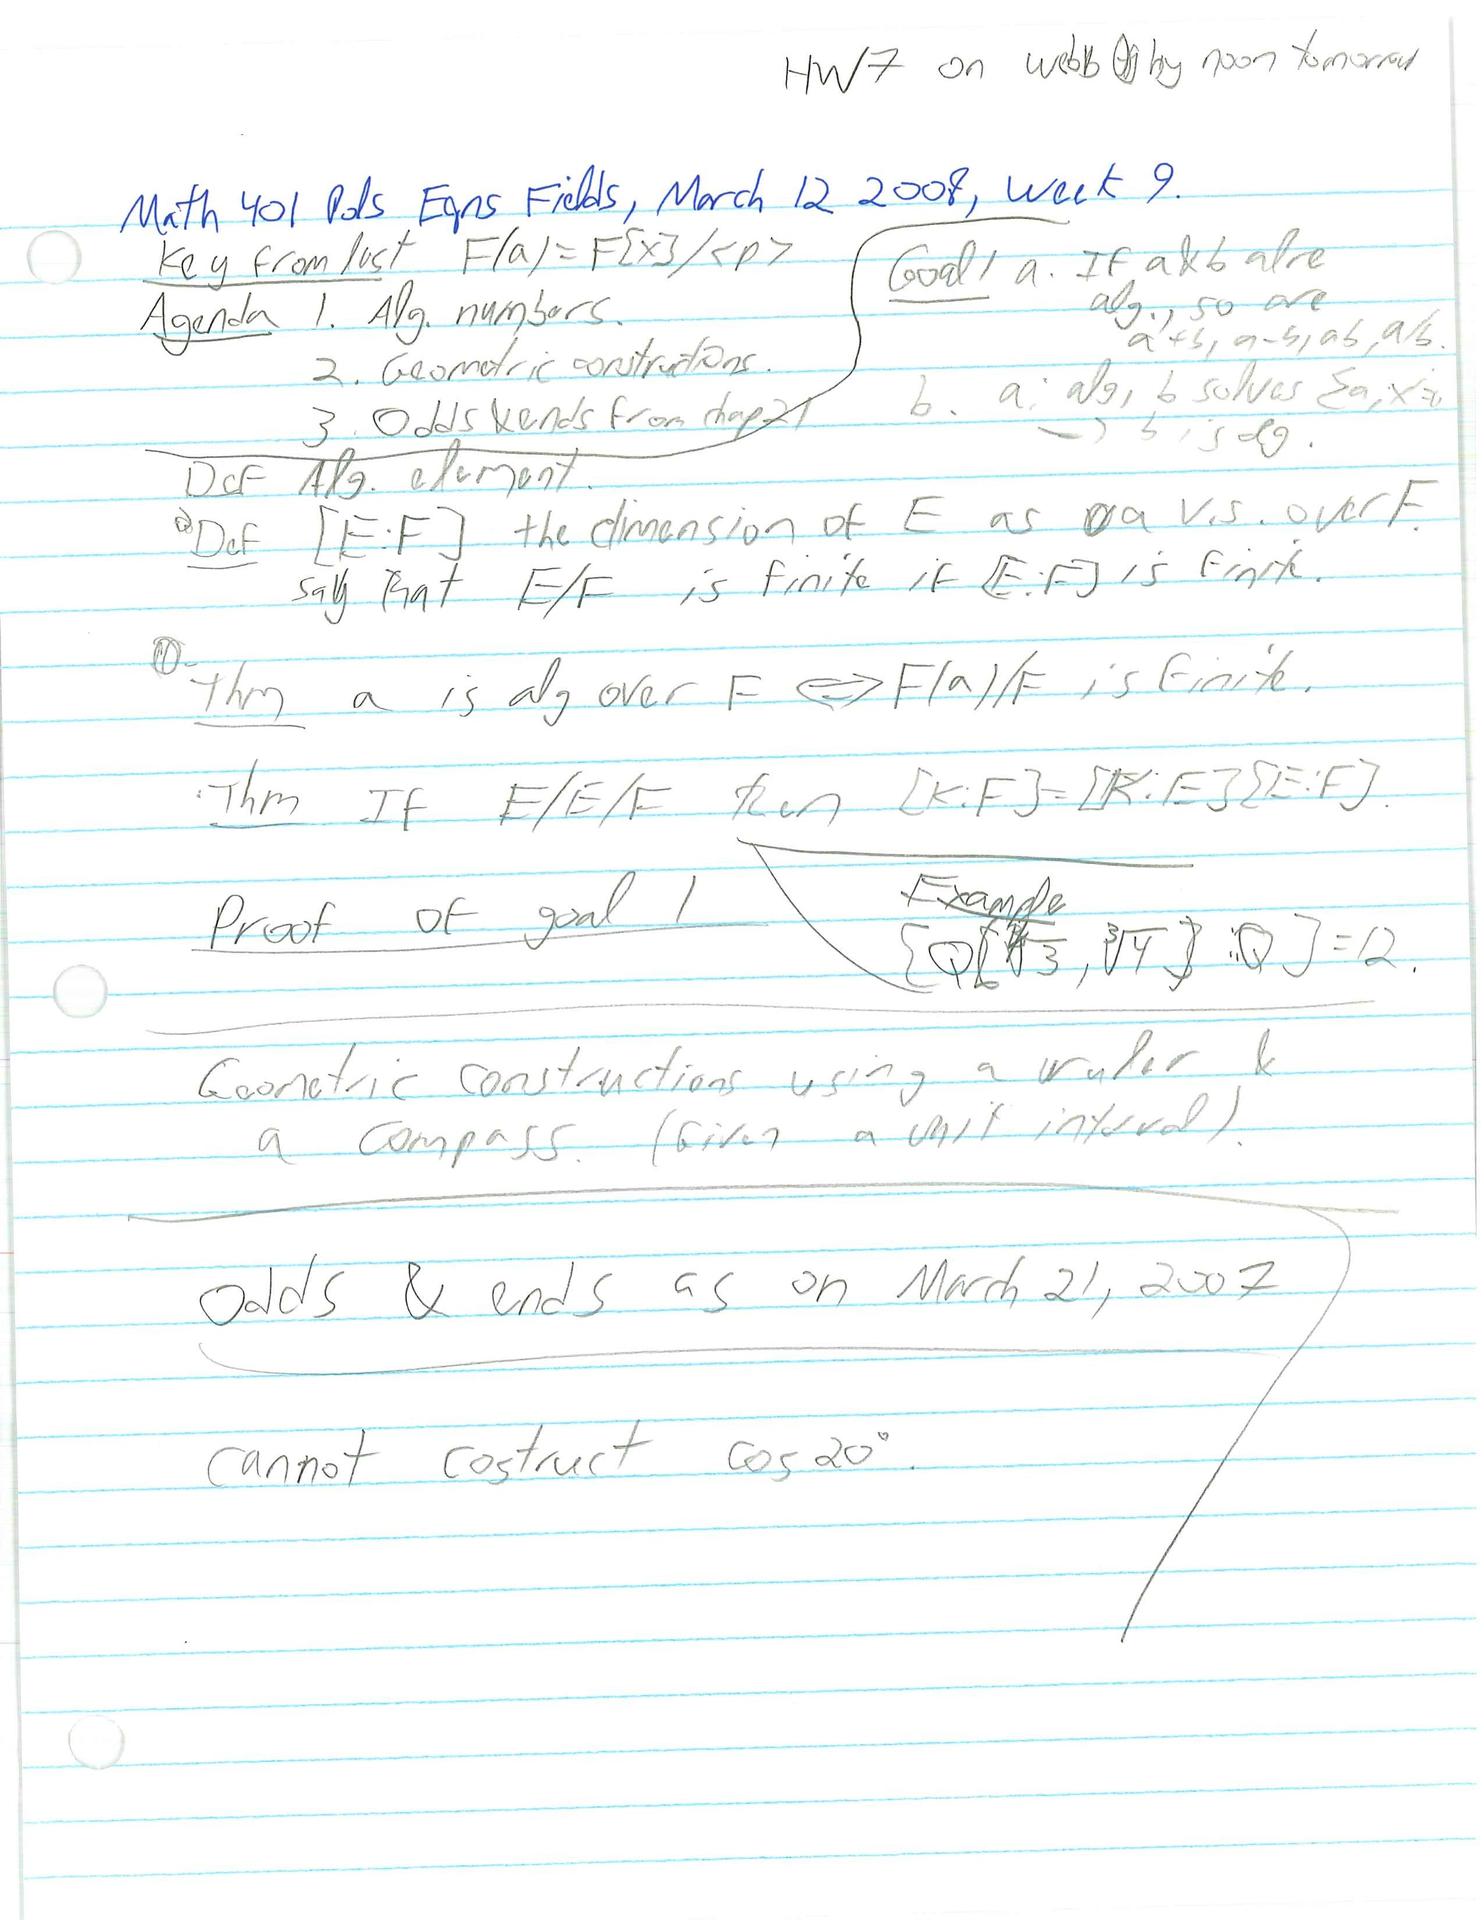 HW7 on web by noon tomorrow
Math 401 Pols Eqns Fields, March 12 2008, Week 9.
Key from last F(a)=F[x]/<p>
Agenda 1. Alg. numbers.
2. Geometric constructions.
3. Odds & ends from chap 21
Goal 1 a. If a & b alre
alg., so are
a+b, a-b, ab, a/b.
b. aᵢ alg, b solves Σaᵢxⁱ=0
→ b is alg.
Def Alg. element.
② Def [E:F] the dimension of E as a V.S. over F.
say that E/F is finite if [E:F] is finite.
① Thm a is alg over F ⟺ F(a)/F is finite.
Thm If E/E/F then [K:F]=[K:E][E:F].
Proof of goal 1
Example
[Q[∜3, ∛4]:Q]=12.
Geometric constructions using a ruler &
a compass. (Given a unit interval).
Odds & ends as on March 21, 2007
cannot costruct cos 20°.